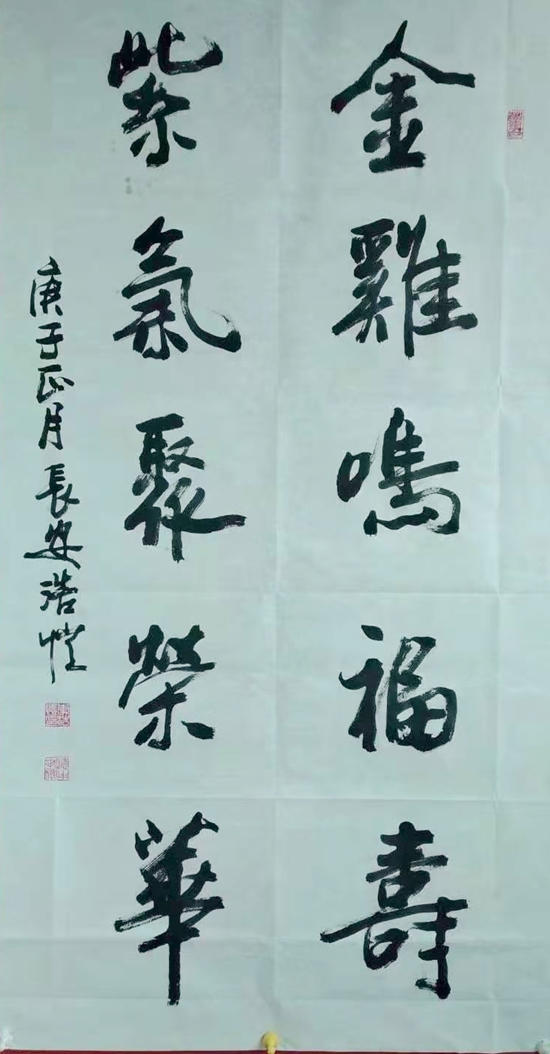 金雞鳴福壽
紫氣聚榮華
庚子正月長安浩愷